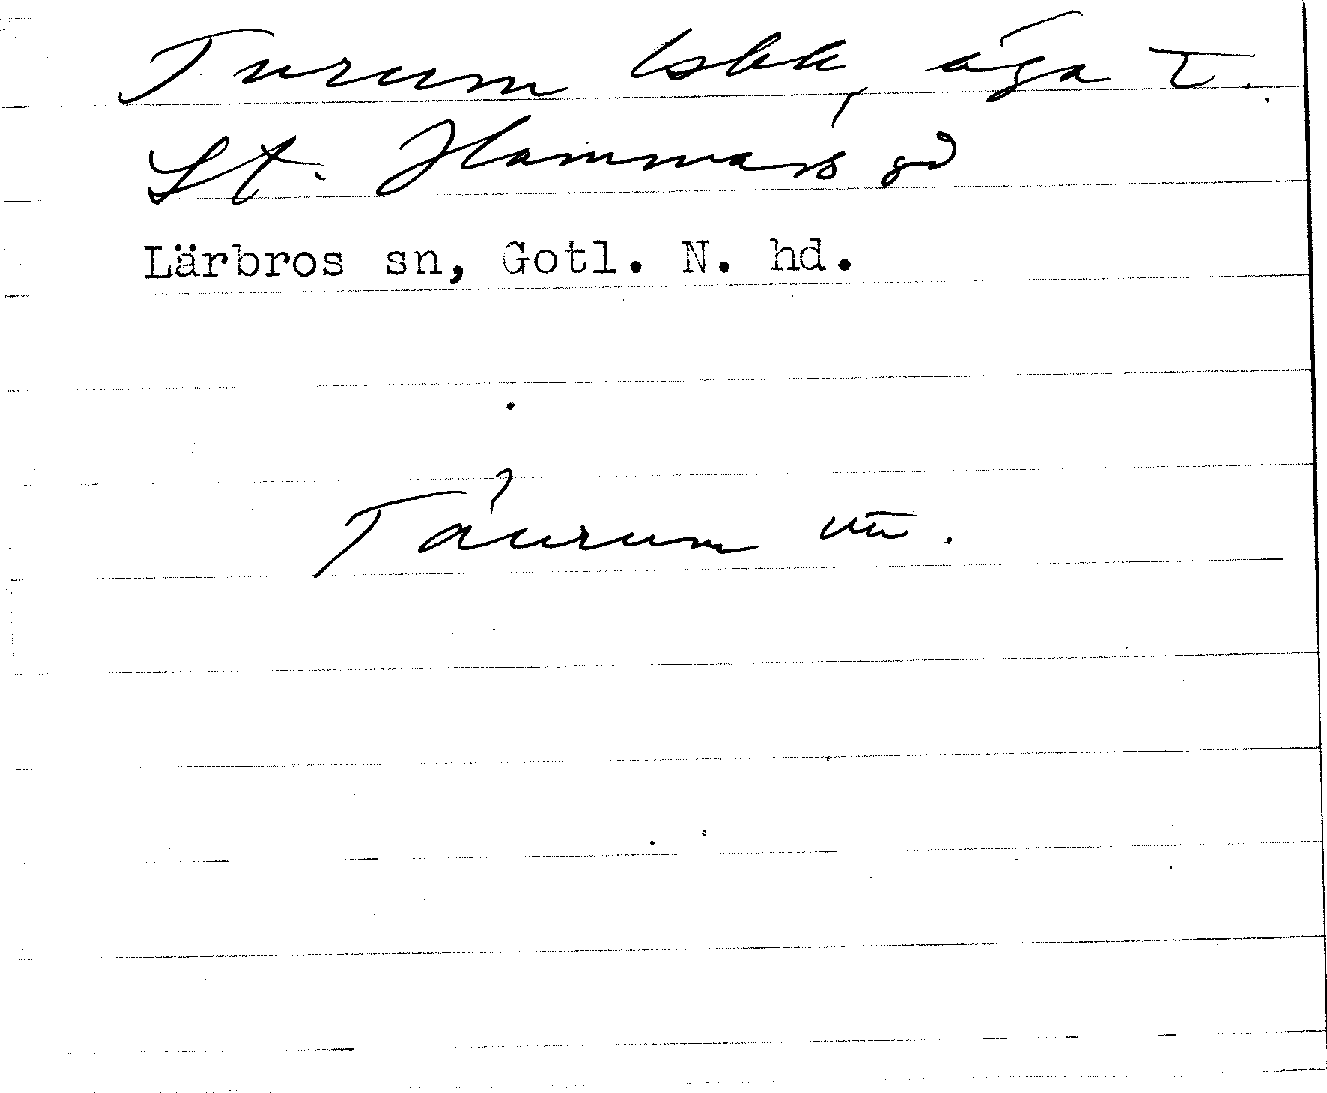 Turum lsbk, äga t.
St. Hammars gd
Lärbros sn, Gotl. N. hd.
Täurum